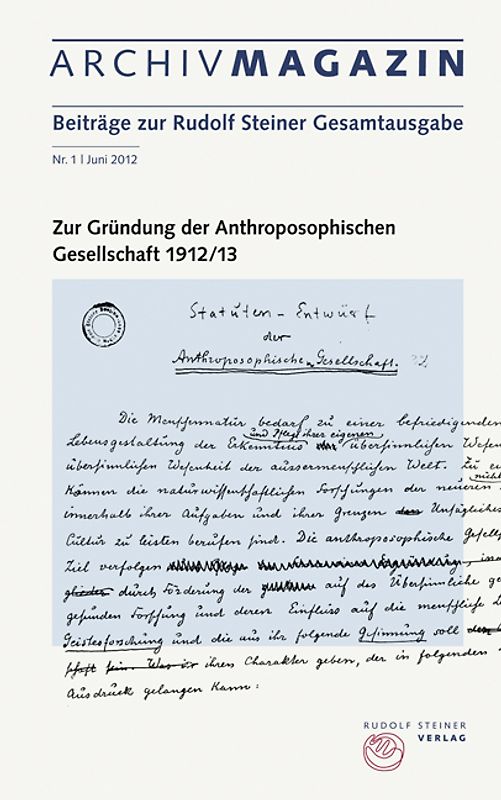 ARCHIVMAGAZIN
Beiträge zur Rudolf Steiner Gesamtausgabe
Nr. 1 | Juni 2012
Zur Gründung der Anthroposophischen
Gesellschaft 1912/13
Statuten-Entwurf
der
Anthroposophischen Gesellschaft.
Die Menschennatur bedarf zu einer befriedigenden
und Pflege ihrer eigenen
Lebensgestaltung der Erkenntnis übersinnlichen Wesen
übersinnlichen Wesenheit der aussermenschlichen Welt. Zu
nicht
können die naturwissenschaftlichen Forschungen der neueren
innerhalb ihrer Aufgaben und ihrer Grenzen Unsägliches
Cultur zu leisten berufen sind. Die anthroposophische Gesell
Ziel verfolgen
durch Förderung der auf das Übersinnliche
gesunden Forschung und deren Einfluss auf die menschliche
Geistesforschung und die aus ihr folgende Gesinnung soll
ihren Charakter geben, der in folgenden
Ausdruck gelangen kann:
RUDOLF STEINER
VERLAG